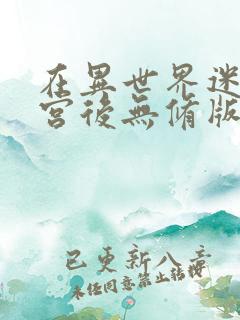 在異世界迷
宮後無修版
已更新八章
未经同意禁止转发